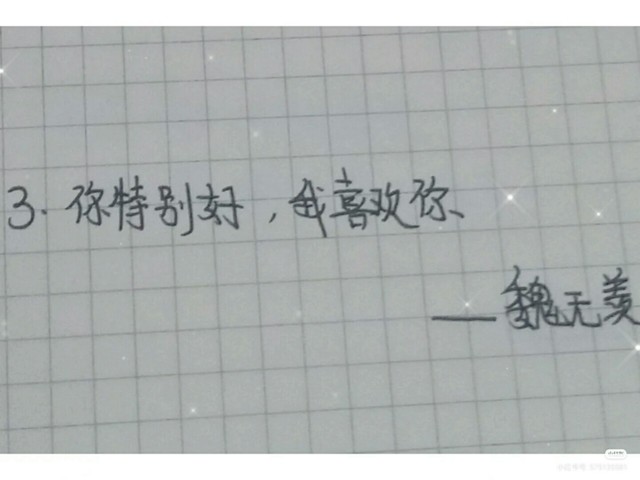 3. 你特别好，我喜欢你、
——魏无羡
小红书